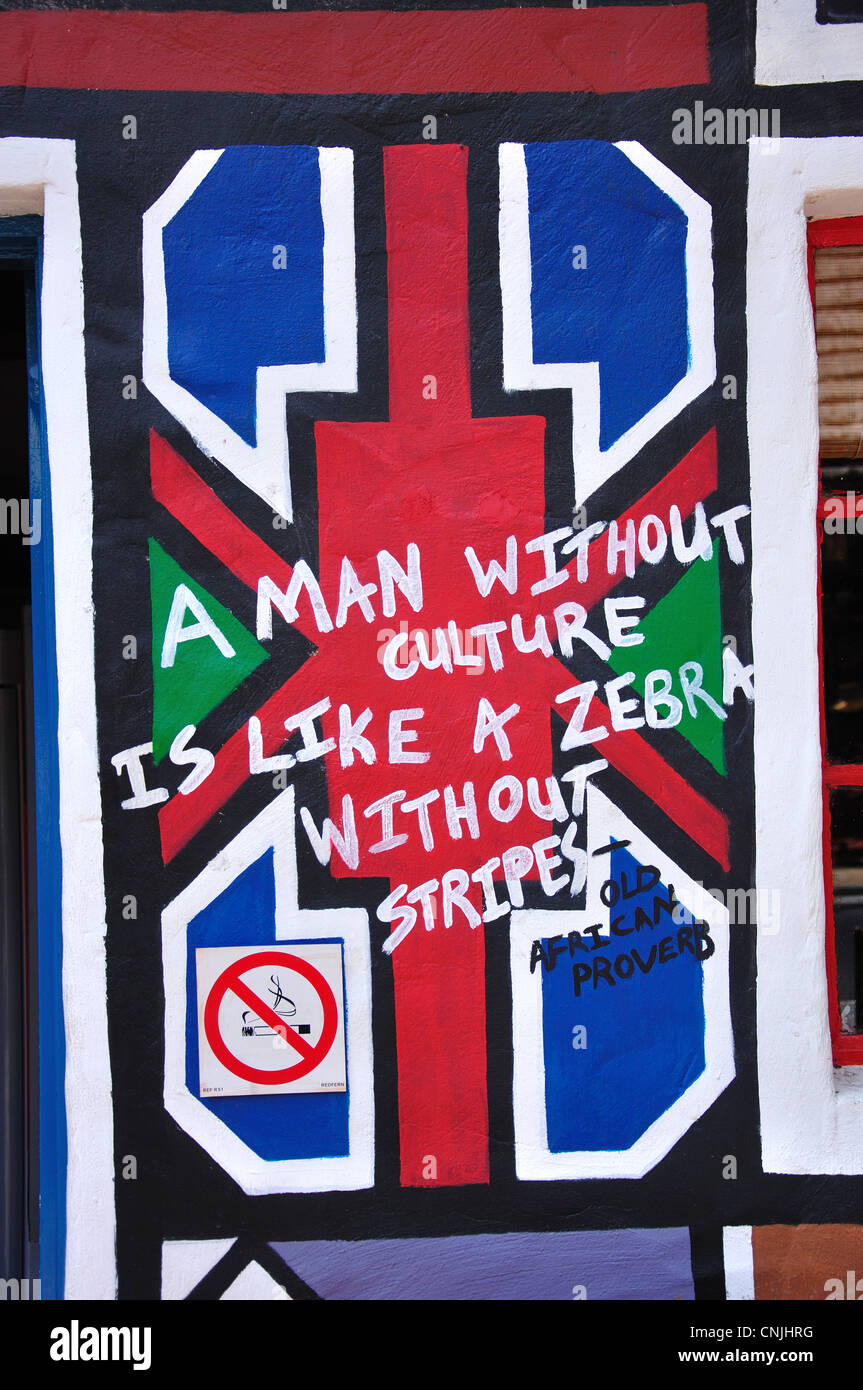 A MAN WITHOUT
CULTURE
IS LIKE A ZEBRA
WITHOUT
STRIPES-
OLD
AFRICAN
PROVERB
REF RS1 REDFERN
alamy
Image ID: CNJHRG
www.alamy.com